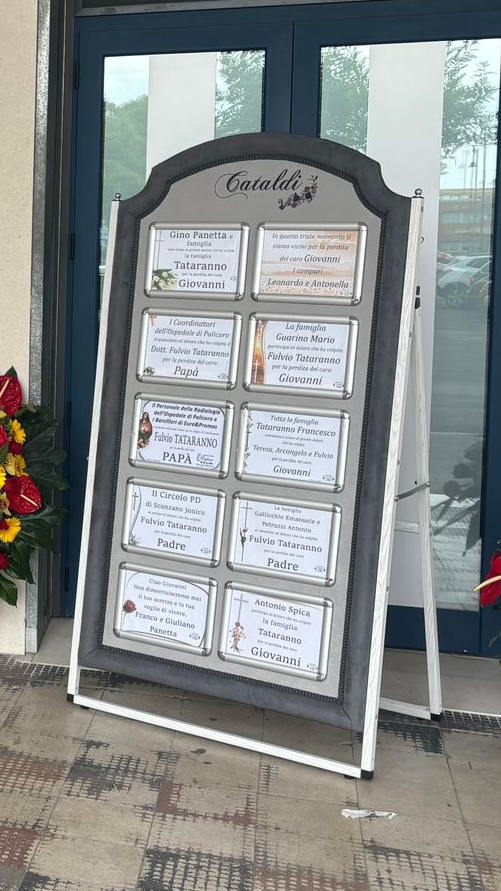 Cataldi
Gino Panetta e
famiglia
la famiglia
Tataranno
per la perdita del caro
Giovanni
In questo triste momento ti
siamo vicini per la perdita
del caro Giovanni
I compari
Leonardo e Antonella
I Coordinatori
dell'Ospedale di Policoro
si associano al dolore che ha colpito il
Dott. Fulvio Tataranno
per la perdita del caro
Papà
La famiglia
Guarino Mario
partecipa al dolore che ha colpito
Fulvio Tataranno
per la perdita del caro
Giovanni
Il Personale della Radiologia
dell'Ospedale di Policoro e
i Barellieri di Euro&Promos
Fulvio TATARANNO
PAPÀ
Tutta la famiglia
Tataranno Francesco
Teresa, Arcangelo e Fulvio
per la perdita del caro
Giovanni
Il Circolo PD
di Scanzano Jonico
Fulvio Tataranno
per la perdita del caro
Padre
La famiglia
Gallicchio Emanuele e
Petruzzi Antonio
Fulvio Tataranno
per la perdita del caro
Padre
Ciao Giovanni
Non dimenticheremo mai
il tuo sorriso e la tua
voglia di vivere.
Franco e Giuliano
Panetta
Antonio Spica
partecipa al dolore che ha colpito
la famiglia
Tataranno
per la perdita del caro
Giovanni